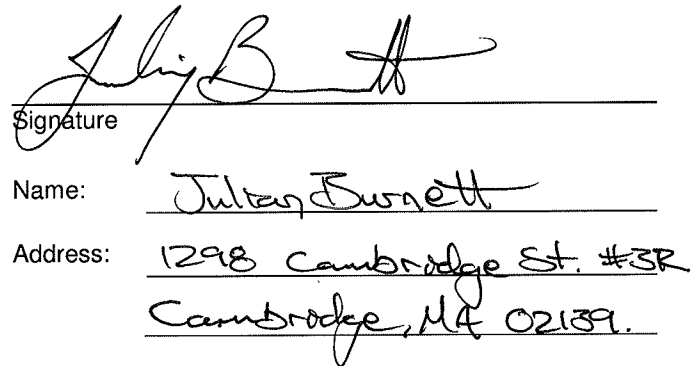 Julian Burnett
Signature
Name: Julian Burnett
Address: 1298 Cambridge St. #3R
Cambridge, MA 02139.